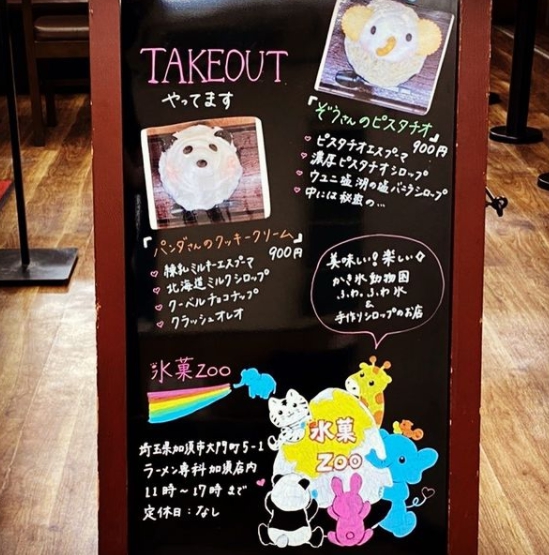 TAKEOUT
やってます
『ぞうさんのピスタチオ』
900円
♥ ピスタチオエスプーマ
♥ 濃厚ピスタチオシロップ
♥ ウユニ塩湖の塩バニラシロップ
♥ 中には秘密の…
『パンダさんのクッキークリーム』
900円
♥ 練乳ミルキーエスプーマ
♥ 北海道ミルクシロップ
♥ クーベルチョコチップ
♥ クラッシュオレオ
美味しい!楽しい♢
かき氷動物園
ふわふわ氷
&
手作りシロップのお店
氷菓ZOO
氷菓
ZOO
埼玉県加須市大門町5-1
ラーメン専科加須店内
11時〜17時まで
定休日:なし